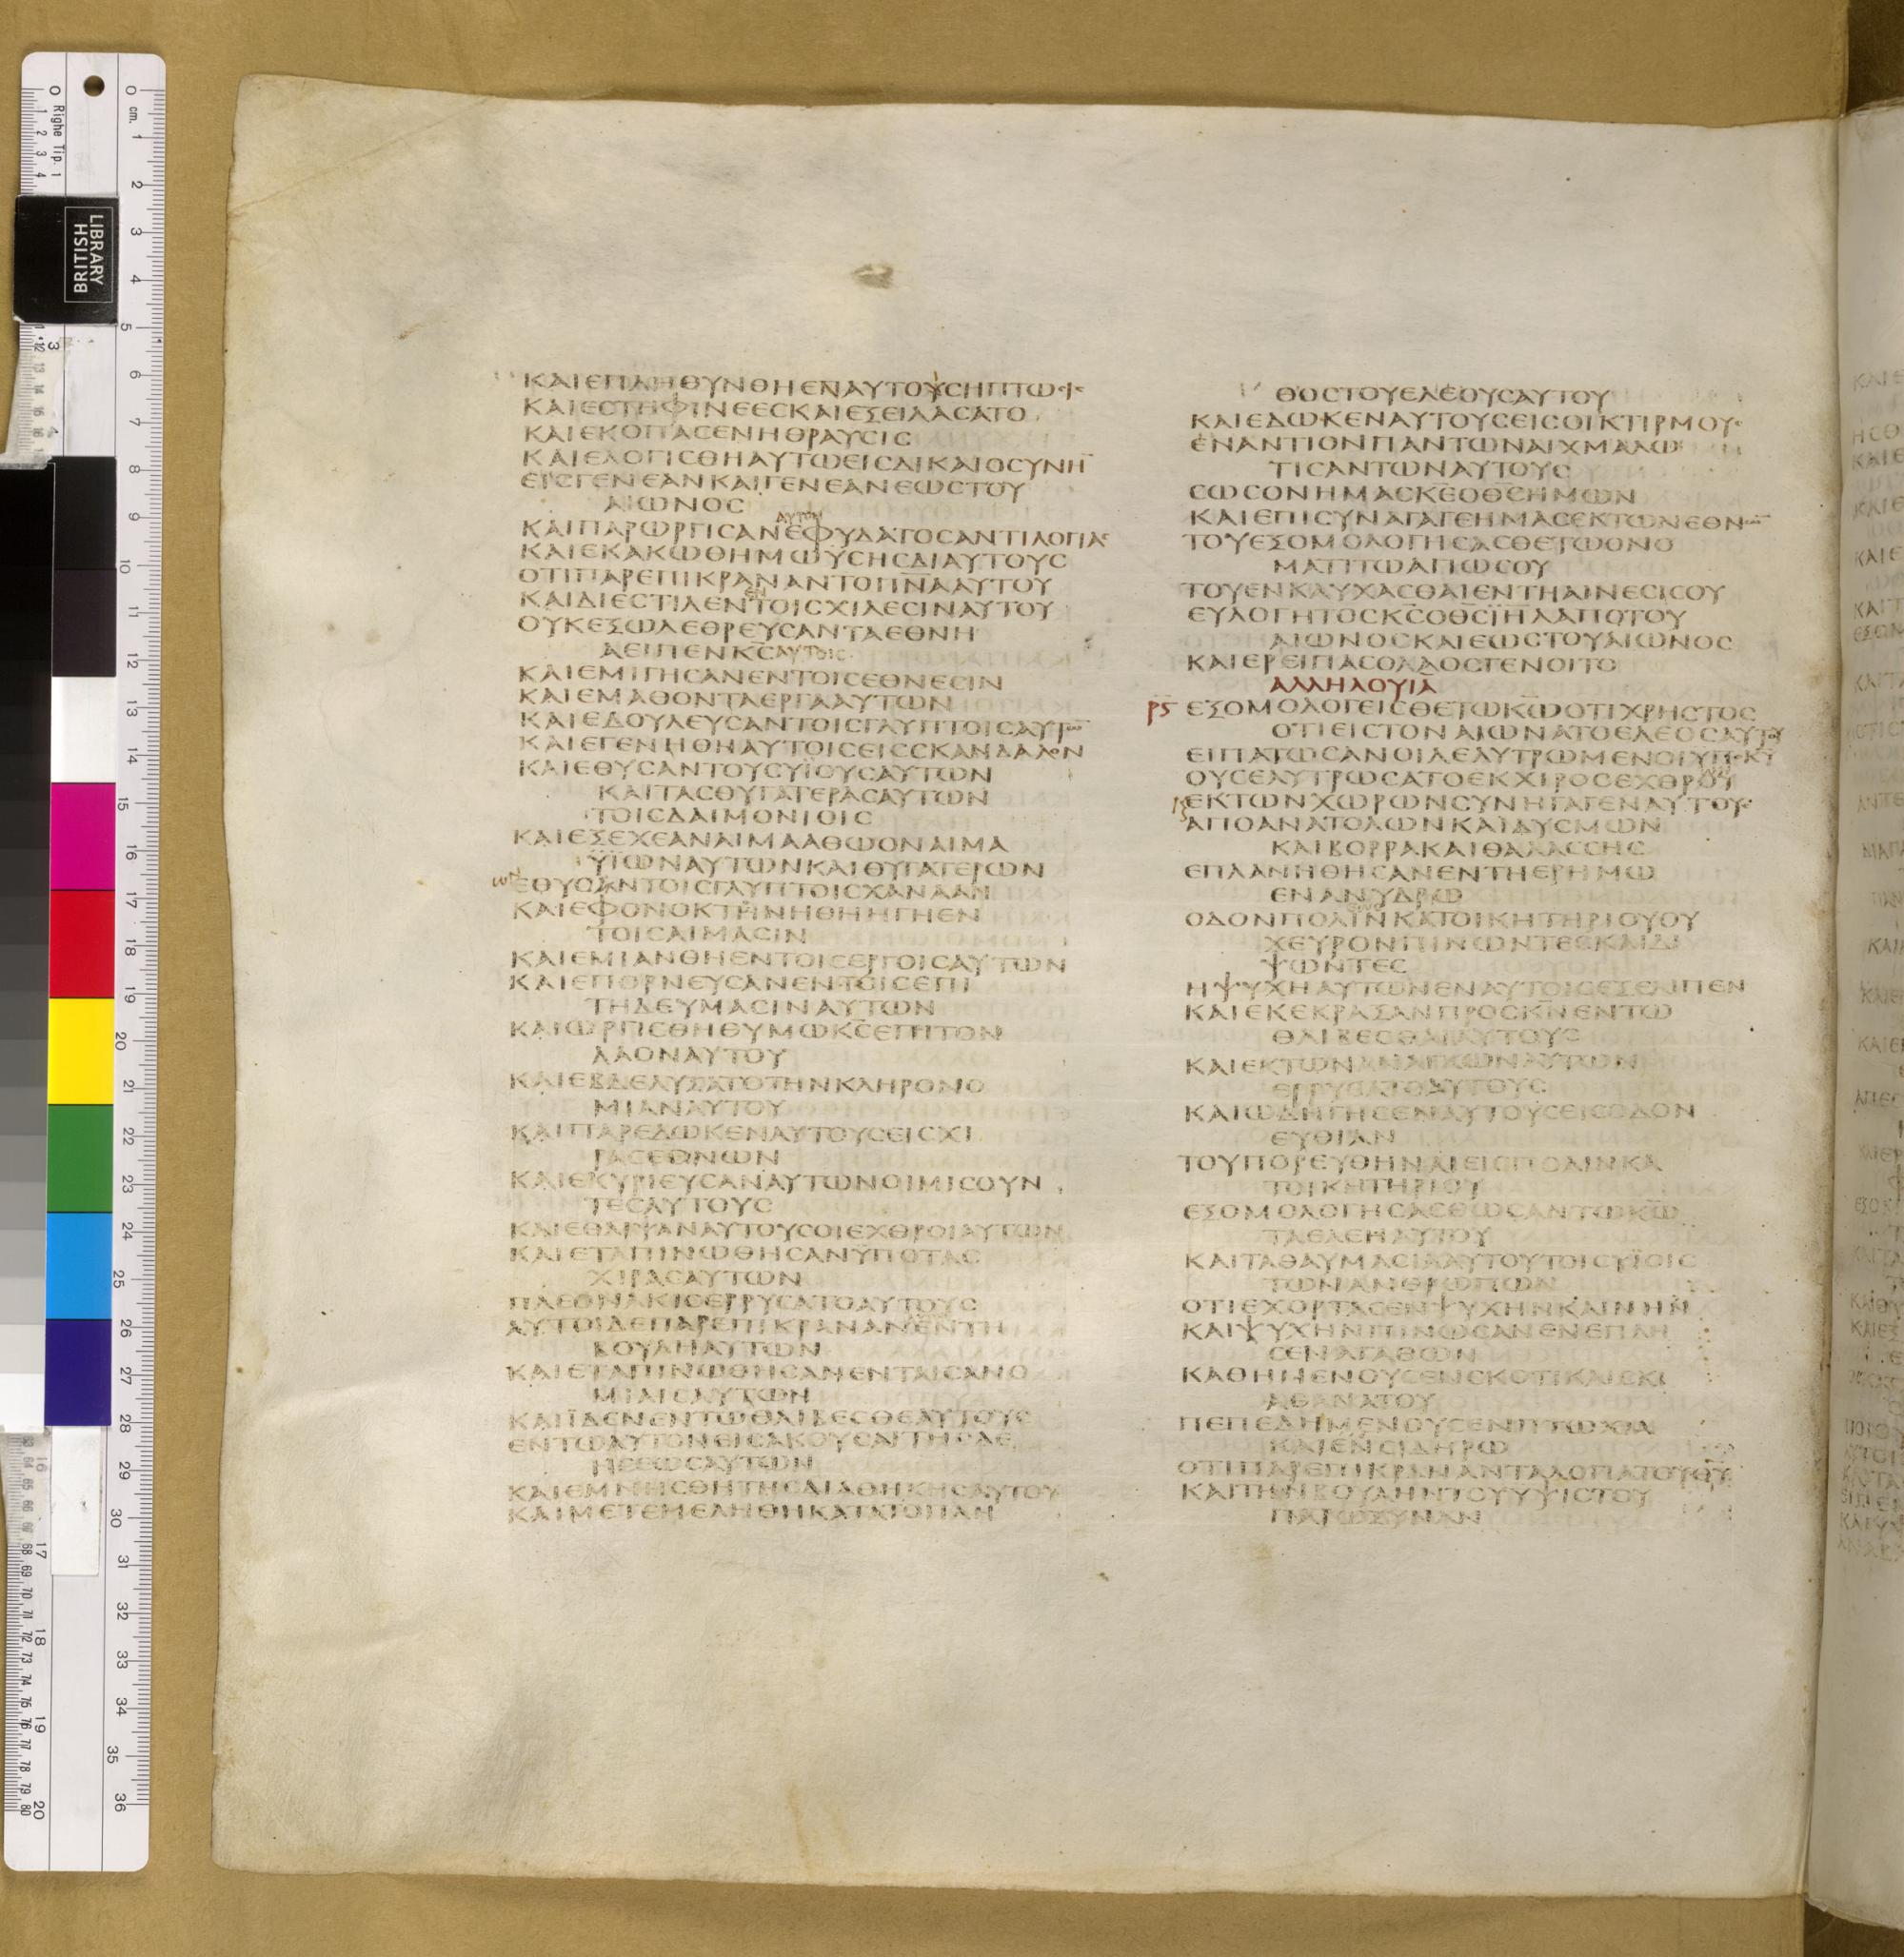 ΚΑΙΕΠΛΗΘΥΝΘΗΕΝΑΥΤΟΥϹΗΠΤΩϹΙϹ
ΚΑΙΕϹΤΗΦΙΝΕΕϹΚΑΙΕΞΕΙΛΑϹΑΤΟ
ΚΑΙΕΚΟΠΑϹΕΝΗΘΡΑΥϹΙϹ
ΚΑΙΕΛΟΓΙϹΘΗΑΥΤΩΕΙϹΔΙΚΑΙΟϹΥΝΗ̅
ΕΙϹΓΕΝΕΑΝΚΑΙΓΕΝΕΑΝΕΩϹΤΟΥ
ΑΙΩΝΟϹ
ΑΥΤΟΝ
ΚΑΙΠΑΡΩΡΓΙϹΑΝΕΦΥΔΑΤΟϹΑΝΤΙΛΟΓΙΑϹ
ΚΑΙΕΚΑΚΩΘΗΜΩΥϹΗϹΔΙΑΥΤΟΥϹ
ΟΤΙΠΑΡΕΠΙΚΡΑΝΑΝΤΟΠ̅Ν̅ΑΑΥΤΟΥ
ΕΝ
ΚΑΙΔΙΕϹΤΙΛΕΝΤΟΙϹΧΙΛΕϹΙΝΑΥΤΟΥ
ΟΥΚΕΞΩΛΕΘΡΕΥϹΑΝΤΑΕΘΝΗ
ΑΕΙΠΕΝΚ̅Ϲ̅ΑΥΤΟΙϹ
ΚΑΙΕΜΙΓΗϹΑΝΕΝΤΟΙϹΕΘΝΕϹΙΝ
ΚΑΙΕΜΑΘΟΝΤΑΕΡΓΑΑΥΤΩΝ
ΚΑΙΕΔΟΥΛΕΥϹΑΝΤΟΙϹΓΛΥΠΤΟΙϹΑΥΤΩ̅
ΚΑΙΕΓΕΝΗΘΗΑΥΤΟΙϹΕΙϹϹΚΑΝΔΑΛΟΝ
ΚΑΙΕΘΥϹΑΝΤΟΥϹΥΪΟΥϹΑΥΤΩΝ
ΚΑΙΤΑϹΘΥΓΑΤΕΡΑϹΑΥΤΩΝ
ΤΟΙϹΔΑΙΜΟΝΙΟΙϹ
ΚΑΙΕΞΕΧΕΑΝΑΙΜΑΑΘΩΟΝΑΙΜΑ
ΥΪΩΝΑΥΤΩΝΚΑΙΘΥΓΑΤΕΡΩΝ
ΩΝ
ΕΘΥϹΑΝΤΟΙϹΓΛΥΠΤΟΙϹΧΑΝΑΑΝ
ΚΑΙΕΦΟΝΟΚΤΗΝΗΘΗΗΓΗΕΝ
ΤΟΙϹΑΙΜΑϹΙΝ
ΚΑΙΕΜΙΑΝΘΗΕΝΤΟΙϹΕΡΓΟΙϹΑΥΤΩΝ
ΚΑΙΕΠΟΡΝΕΥϹΑΝΕΝΤΟΙϹΕΠΙ
ΤΗΔΕΥΜΑϹΙΝΑΥΤΩΝ
ΚΑΙΩΡΓΙϹΘΗΘΥΜΩΚ̅Ϲ̅ΕΠΙΤΟΝ
ΛΑΟΝΑΥΤΟΥ
ΚΑΙΕΒΔΕΛΥΞΑΤΟΤΗΝΚΛΗΡΟΝΟ
ΜΙΑΝΑΥΤΟΥ
ΚΑΙΠΑΡΕΔΩΚΕΝΑΥΤΟΥϹΕΙϹΧΙ
ΡΑϹΕΘΝΩΝ
ΚΑΙΕΚΥΡΙΕΥϹΑΝΑΥΤΩΝΟΙΜΙϹΟΥΝ
ΤΕϹΑΥΤΟΥϹ
ΚΑΙΕΘΛΙΨΑΝΑΥΤΟΥϹΟΙΕΧΘΡΟΙΑΥΤΩΝ
ΚΑΙΕΤΑΠΙΝΩΘΗϹΑΝΫΠΟΤΑϹ
ΧΙΡΑϹΑΥΤΩΝ
ΠΛΕΟΝΑΚΙϹΕΡΡΥϹΑΤΟΑΥΤΟΥϹ
ΑΥΤΟΙΔΕΠΑΡΕΠΙΚΡΑΝΑΝΕΝΤΗ
ΒΟΥΛΗΑΥΤΩΝ
ΚΑΙΕΤΑΠΙΝΩΘΗϹΑΝΕΝΤΑΙϹΑΝΟ
ΜΙΑΙϹΑΥΤΩΝ
ΚΑΙΪΔΕΝΕΝΤΩΘΛΙΒΕϹΘΕΑΥΤΟΥϹ
ΕΝΤΩΑΥΤΟΝΕΙϹΑΚΟΥϹΑΙΤΗϹΔΕ
ΗϹΕΩϹΑΥΤΩΝ
ΚΑΙΕΜΝΗϹΘΗΤΗϹΔΙΑΘΗΚΗϹΑΥΤΟΥ
ΚΑΙΜΕΤΕΜΕΛΗΘΗΚΑΤΑΤΟΠΛΗ
ΘΟϹΤΟΥΕΛΕΟΥϹΑΥΤΟΥ
ΚΑΙΕΔΩΚΕΝΑΥΤΟΥϹΕΙϹΟΙΚΤΙΡΜΟΥϹ
ΕΝΑΝΤΙΟΝΠΑΝΤΩΝΑΙΧΜΑΛΩ
ΤΙϹΑΝΤΩΝΑΥΤΟΥϹ
ϹΩϹΟΝΗΜΑϹΚ̅Ε̅Ο̅Θ̅Ϲ̅ΗΜΩΝ
ΚΑΙΕΠΙϹΥΝΑΓΑΓΕΗΜΑϹΕΚΤΩΝΕΘΝΩ̅
ΤΟΥΕΞΟΜΟΛΟΓΗϹΑϹΘΕΤΩΟΝΟ
ΜΑΤΙΤΩΑΓΙΩϹΟΥ
ΤΟΥΕΝΚΑΥΧΑϹΘΑΙΕΝΤΗΑΙΝΕϹΙϹΟΥ
ΕΥΛΟΓΗΤΟϹΚ̅Ϲ̅ΟΘ̅Ϲ̅Ι̅Η̅Λ̅ΑΠΟΤΟΥ
ΑΙΩΝΟϹΚΑΙΕΩϹΤΟΥΑΙΩΝΟϹ
ΚΑΙΕΡΕΙΠΑϹΟΛΑΟϹΓΕΝΟΙΤΟ
ΑΛΛΗΛΟΥΙΑ
ΡϚ ΕΞΟΜΟΛΟΓΕΙϹΘΕΤΩΚ̅Ω̅ΟΤΙΧΡΗϹΤΟϹ
ΟΤΙΕΙϹΤΟΝΑΙΩΝΑΤΟΕΛΕΟϹΑΥΤΟΥ
ΕΙΠΑΤΩϹΑΝΟΙΛΕΛΥΤΡΩΜΕΝΟΙΥΠΟΚ̅Υ̅
ΟΥϹΕΛΥΤΡΩϹΑΤΟΕΚΧΙΡΟϹΕΧΘΡΟΥ
ΕΚΤΩΝΧΩΡΩΝϹΥΝΗΓΑΓΕΝΑΥΤΟΥϹ
ΑΠΟΑΝΑΤΟΛΩΝΚΑΙΔΥϹΜΩΝ
ΚΑΙΒΟΡΡΑΚΑΙΘΑΛΑϹϹΗϹ
ΕΠΛΑΝΗΘΗϹΑΝΕΝΤΗΕΡΗΜΩ
ΕΝΑΝΥΔΡΩ
ΟΔΟΝΠΟΛΙΝΚΑΤΟΙΚΗΤΗΡΙΟΥΟΥ
ΧΕΥΡΟΝΠΙΝΩΝΤΕϹΚΑΙΔΙ
ΨΩΝΤΕϹ
ΗΨΥΧΗΑΥΤΩΝΕΝΑΥΤΟΙϹΕΞΕΛΙΠΕΝ
ΚΑΙΕΚΕΚΡΑΞΑΝΠΡΟϹΚ̅Ν̅ΕΝΤΩ
ΘΛΙΒΕϹΘΑΙΑΥΤΟΥϹ
ΚΑΙΕΚΤΩΝΑΝΑΓΚΩΝΑΥΤΩΝ
ΕΡΡΥϹΑΤΟΑΥΤΟΥϹ
ΚΑΙΩΔΗΓΗϹΕΝΑΥΤΟΥϹΕΙϹΟΔΟΝ
ΕΥΘΙΑΝ
ΤΟΥΠΟΡΕΥΘΗΝΑΙΕΙϹΠΟΛΙΝΚΑ
ΤΟΙΚΗΤΗΡΙΟΥ
ΕΞΟΜΟΛΟΓΗϹΑϹΘΩϹΑΝΤΩΚ̅Ω̅
ΤΑΕΛΕΗΑΥΤΟΥ
ΚΑΙΤΑΘΑΥΜΑϹΙΑΑΥΤΟΥΤΟΙϹΥΪΟΙϹ
ΤΩΝΑΝΘΡΩΠΩΝ
ΟΤΙΕΧΟΡΤΑϹΕΝΨΥΧΗΝΚΑΙΝΗΝ
ΚΑΙΨΥΧΗΝΠΙΝΩϹΑΝΕΝΕΠΛΗ
ϹΕΝΑΓΑΘΩΝ
ΚΑΘΗΜΕΝΟΥϹΕΝϹΚΟΤΙΚΑΙϹΚΙ
ΑΘΑΝΑΤΟΥ
ΠΕΠΕΔΗΜΕΝΟΥϹΕΝΠΤΩΧΙΑ
ΚΑΙΕΝϹΙΔΗΡΩ
ΟΤΙΠΑΡΕΠΙΚΡΑΝΑΝΤΑΛΟΓΙΑΤΟΥΘ̅Υ̅
ΚΑΙΤΗΝΒΟΥΛΗΝΤΟΥΥΨΙϹΤΟΥ
ΠΑΡΩΞΥΝΑΝ
BRITISH
LIBRARY